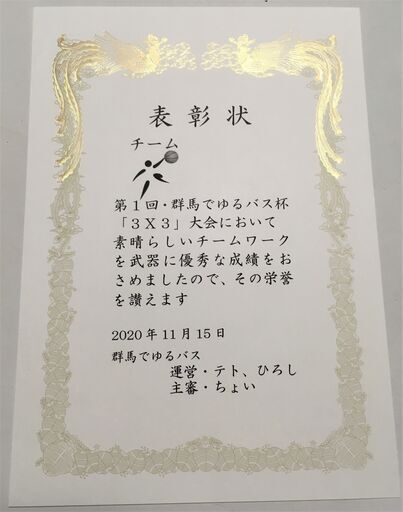 表彰状
チーム
第1回・群馬でゆるバス杯
「3X3」大会において
素晴らしいチームワーク
を武器に優秀な成績をお
さめましたので、その栄誉
を讃えます
2020年11月15日
群馬でゆるバス
運営・テト、ひろし
主審・ちょい